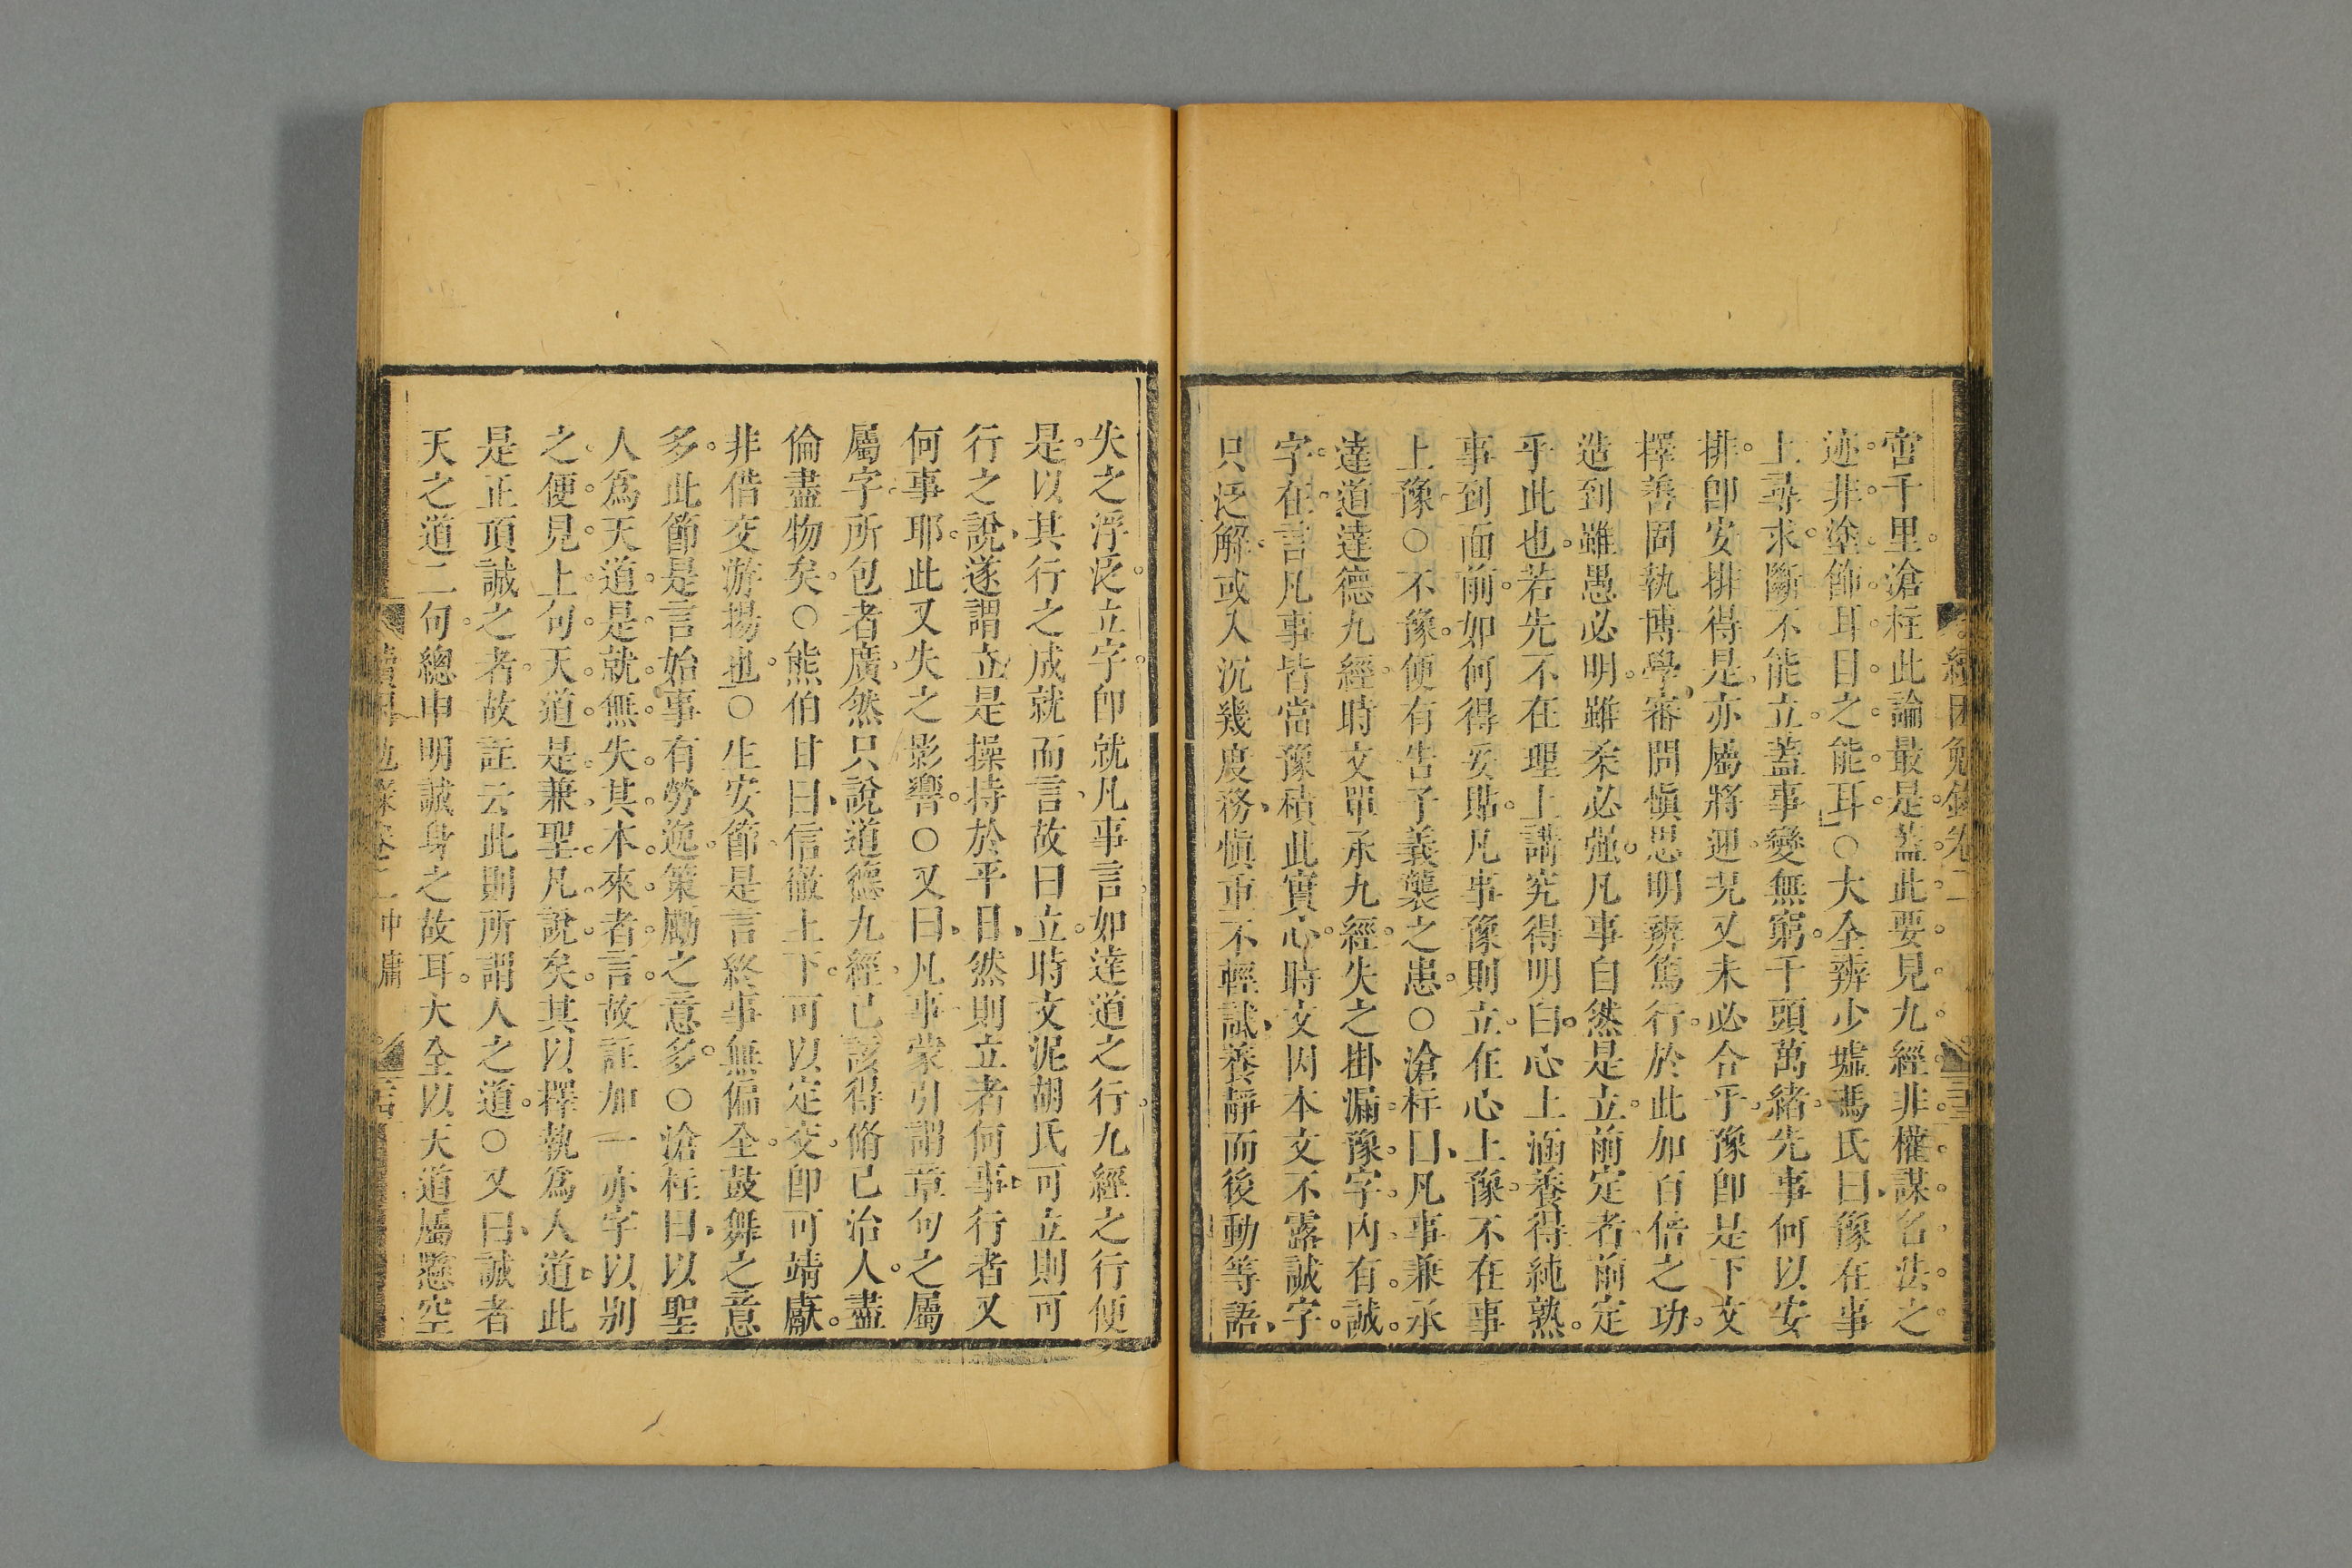 續困勉錄卷二
啻千里滄柱此論最是蓋此要見九經非權謀名法之
迹非塗飾耳目之能耳○大全辨少墟馮氏曰豫在事
上尋求斷不能立蓋事變無窮千頭萬緒先事何以安
排卽安排得是亦屬將迎况又未必合乎豫卽是下文
擇善固執博學審問愼思明辨篤行於此加百倍之功
造到雖愚必明雖柔必强凡事自然是立前定者前定
乎此也若先不在理上講究得明白心上涵養得純熟
事到面前如何得妥貼凡事豫則立在心上豫不在事
上豫○不豫便有告子義襲之患○滄柱曰凡事兼承
達道達德九經時文單承九經失之掛漏豫字內有誠
字在言凡事皆當豫積此實心時文因本文不露誠字
只泛解或入沉幾度務愼重不輕試養靜而後動等語
失之浮泛立字卽就凡事言如達道之行九經之行便
是以其行之成就而言故曰立時文泥胡氏可立則可
行之說遂謂立是操持於平日然則立者何事行者又
何事耶此又失之影響○又曰凡事蒙引謂章句之屬
屬字所包者廣然只說道德九經已該得脩己治人盡
倫盡物矣○熊伯甘曰信徹上下可以定交卽可靖獻
非借交游揚也○生安節是言終事無偏全鼓舞之意
多此節是言始事有勞逸策勵之意多○滄柱曰以聖
人爲天道是就無失其本來者言故註加一亦字以別
之便見上句天道是兼聖凡說矣其以擇執爲人道此
是正頂誠之者故註云此則所謂人之道○又曰誠者
天之道二句總申明誠身之故耳大全以天道屬懸空
續困勉錄卷二中庸